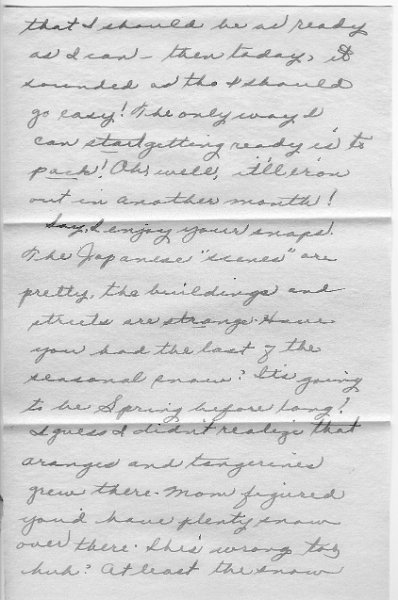 that I should be as ready
as I can - then today, it
sounded as tho I should
go easy! The only way I
can start getting ready is to
pack! Oh well, it'll iron
out in another month!
Say, I enjoy your snaps!
The Japanese "scenes" are
pretty, the buildings and
streets are strange. Have
you had the last of the
seasonal snow? It's going
to be Spring before long!
I guess I didn't realize that
oranges and tangerines
grew there. Mom figured
you'd have plenty snow
over there. She's wrong too,
huh? At least the snow